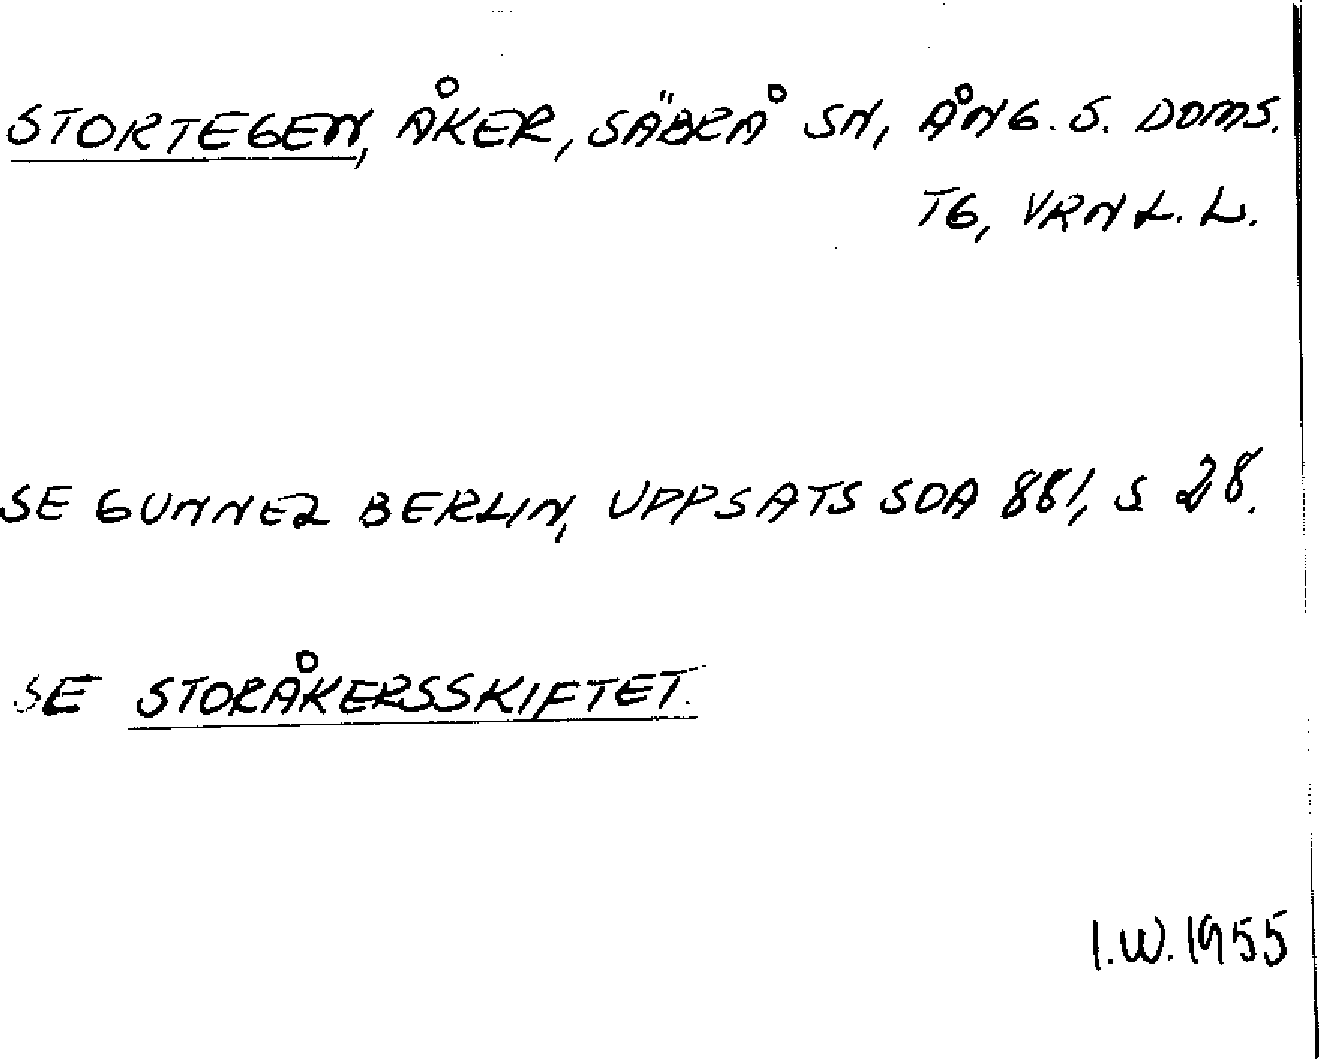 STORTEGEN, ÅKER, SÄBRÅ SN, ÅNG. S. DOMS.
TG, VRNL. L.
SE GUNNER BERLIN, UPPSATS SOA 881, S 28.
SE STORÅKERSSKIFTET.
I.W. 1955